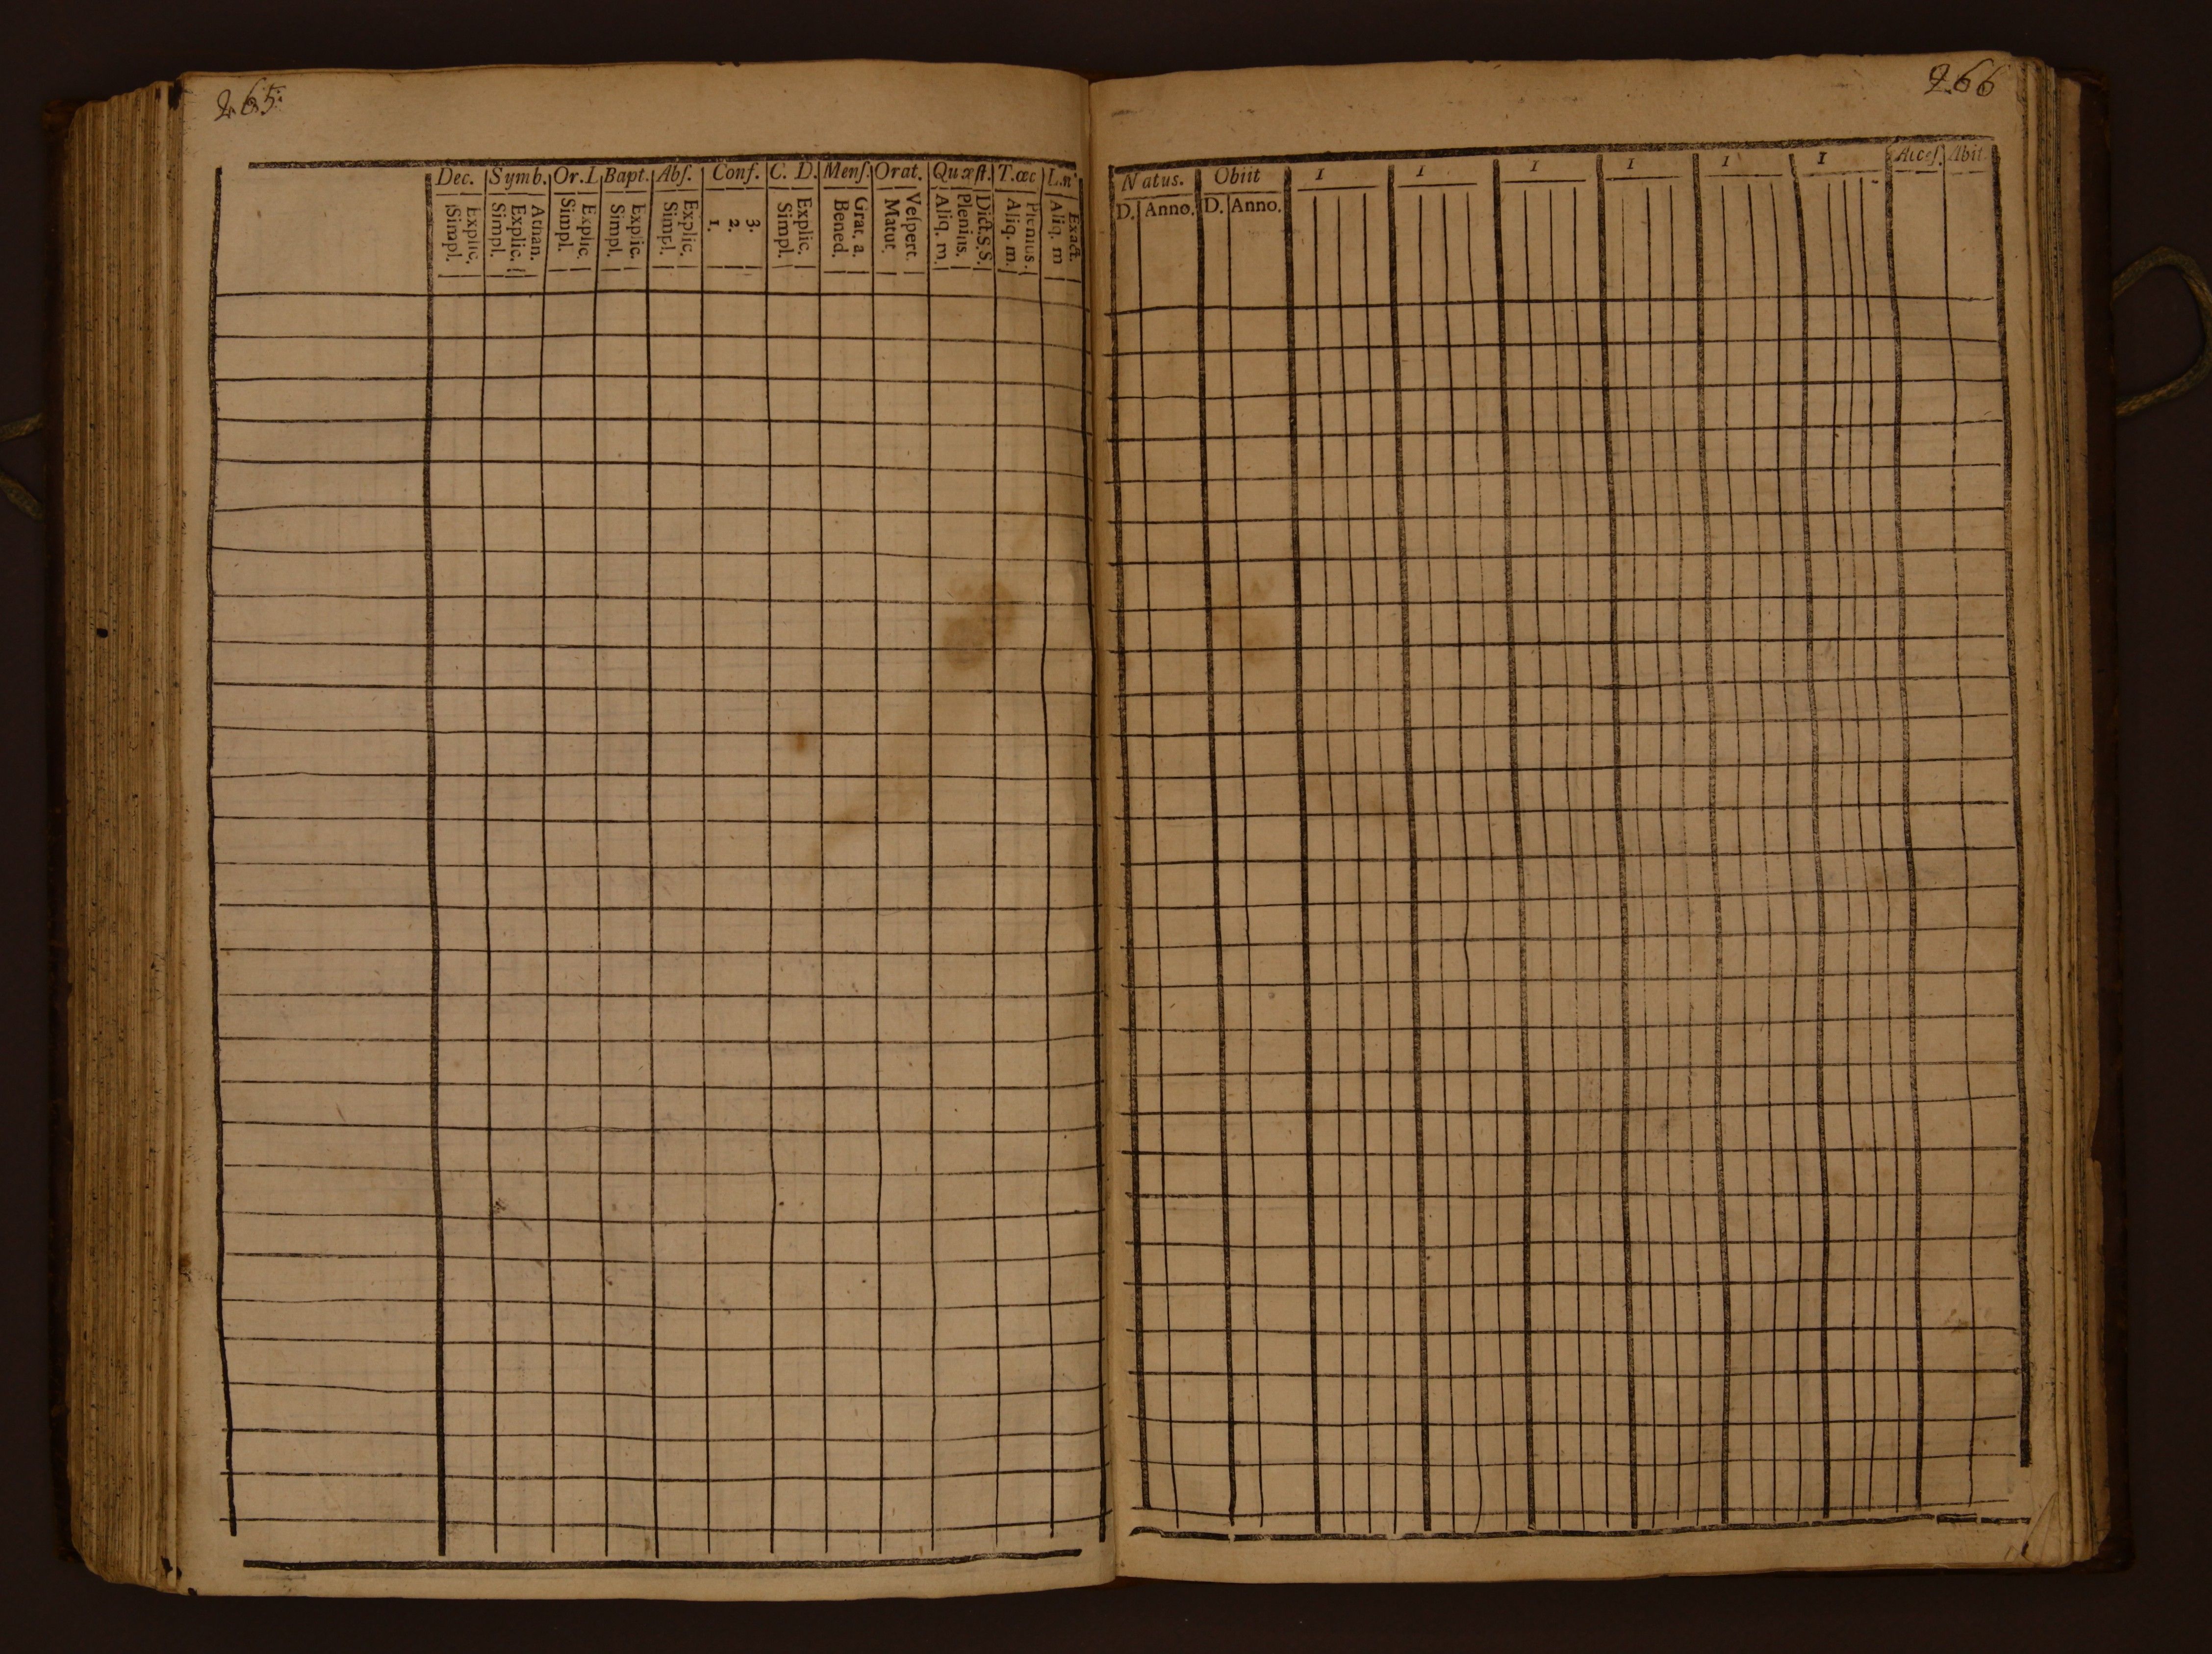 265.
Dec. Symb. Or. I. Bapt. Abſ. Conf. C. D. Menſ. Orat. Quæſt. T. œc L. n
Explic. Simpl.
Athan. Explic. Simpl.
Explic. Simpl.
Explic. Simpl.
Explic. Simpl.
3. 2. 1.
Explic. Simpl.
Grat. a. Bened.
Veſpert. Matut.
Dict. S. S. Plenius. Aliq. m.
Plenius. Aliq. m.
Exact. Aliq. m
266
Natus. Obiit I I I I I I Acceſ. Abit.
D. Anno. D. Anno.